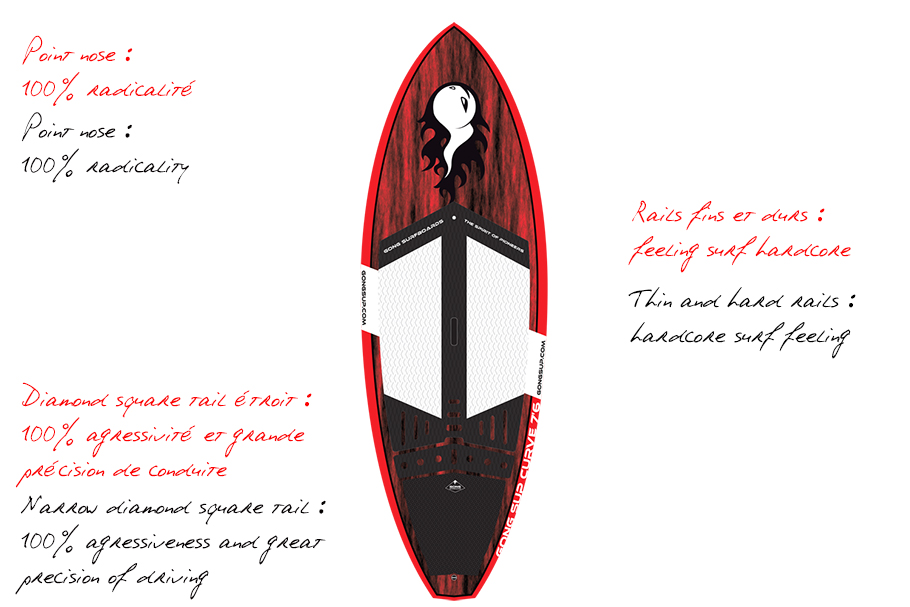 Point nose :
100% radicalité
Point nose :
100% radicality
Rails fins et durs :
feeling surf hardcore
Thin and hard rails :
hardcore surf feeling
Diamond square tail étroit :
100% agressivité et grande
précision de conduite
Narrow diamond square tail :
100% agressiveness and great
precision of driving
GONG SURFBOARDS
THE SPIRIT OF PIONEERS
GONGSUP.COM
GONGSUP.COM
GONG SUP CURVE 7'6
GONG